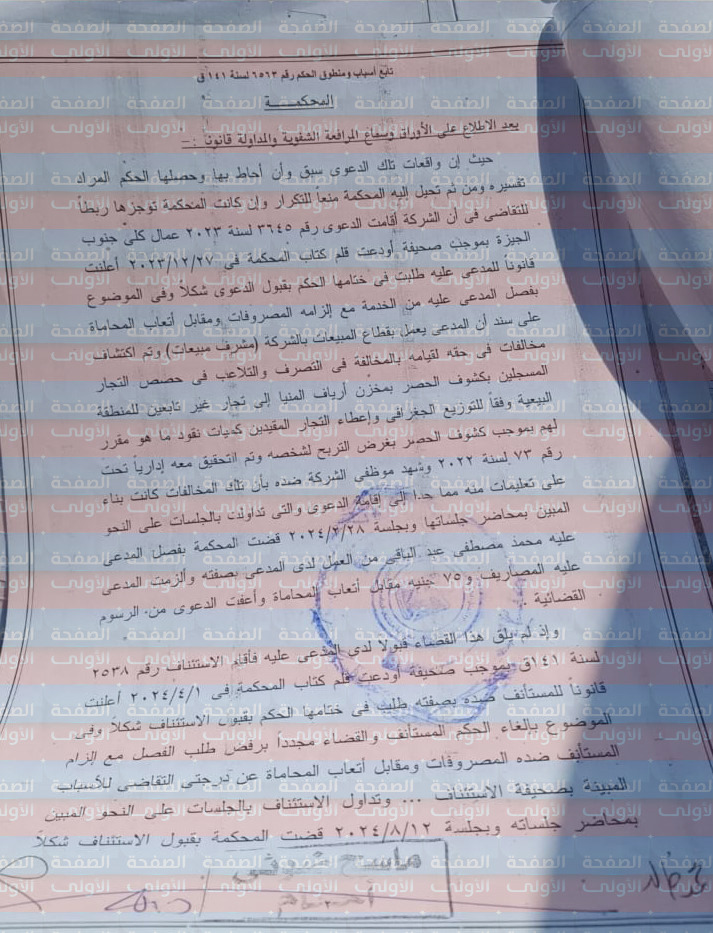 تابع أسباب ومنطوق الحكم رقم ٦٥٦٣ لسنة ١٤١ ق
المحكمــــة
بعد الاطلاع على الأوراق وسماع المرافعة الشفوية والمداولة قانوناً :-
حيث إن واقعات تلك الدعوى سبق وأن أحاط بها وحصلها الحكم المراد
تفسيره ومن ثم تحيل إليه المحكمة منعاً للتكرار وإن كانت المحكمة توجزها ربطاً
للتقاضى فى أن الشركة أقامت الدعوى رقم ٣٦٤٥ لسنة ٢٠٢٣ عمال كلى جنوب
الجيزة بموجب صحيفة أودعت قلم كتاب المحكمة فى ٢٠٢٣/١٢/٢٧ أعلنت
قانوناً للمدعى عليه طلبت فى ختامها الحكم بقبول الدعوى شكلاً وفى الموضوع
بفصل المدعى عليه من الخدمة مع إلزامه المصروفات ومقابل أتعاب المحاماة
على سند أن المدعى يعمل بقطاع المبيعات بالشركة (مشرف مبيعات) وتم اكتشاف
مخالفات فى حقه لقيامه بالمخالفة فى التصرف والتلاعب فى حصص التجار
المسجلين بكشوف الحصر بمخزن أرياف المنيا إلى تجار غير تابعين للمنطقة
البيعية وفقاً للتوزيع الجغرافى وإعطاء التجار المقيدين كميات نقود ما هو مقرر
لهم بموجب كشوف الحصر بغرض التربح لشخصه وتم التحقيق معه إدارياً تحت
رقم ٧٣ لسنة ٢٠٢٢ وشهد موظفى الشركة ضده بأن تلك المخالفات كانت بناء
على تعليمات منه مما حدا إلى إقامة الدعوى والتى تداولت بالجلسات على النحو
المبين بمحاضر جلساتها وبجلسة ٢٠٢٤/٢/٢٨ قضت المحكمة بفصل المدعى
عليه محمد مصطفى عبد الباقى من العمل لدى المدعى بصفته وألزمت المدعى
عليه المصاريف و ٧٥ جنيه مقابل أتعاب المحاماة وأعفت الدعوى من الرسوم
القضائية
وإذ لم يلق هذا القضاء قبولا لدى المدعى عليه فأقام الاستئناف رقم ٢٥٣٨
لسنة ١٤١ق بموجب صحيفة أودعت قلم كتاب المحكمة فى ٢٠٢٤/٤/١ أعلنت
قانوناً للمستأنف ضده بصفته طلب فى ختامها الحكم بقبول الاستئناف شكلاً وفى
الموضوع بإلغاء الحكم المستأنف والقضاء مجدداً برفض طلب الفصل مع إلزام
المستأنف ضده المصروفات ومقابل أتعاب المحاماة عن درجتى التقاضى للأسباب
المبينة بصحيفة الاستئناف ... وتداول الاستئناف بالجلسات على النحو المبين
بمحاضر جلساته وبجلسة ٢٠٢٤/٨/١٢ قضت المحكمة بقبول الاستئناف شكلاً
ماسح ضوئى
الصفحة الأولى